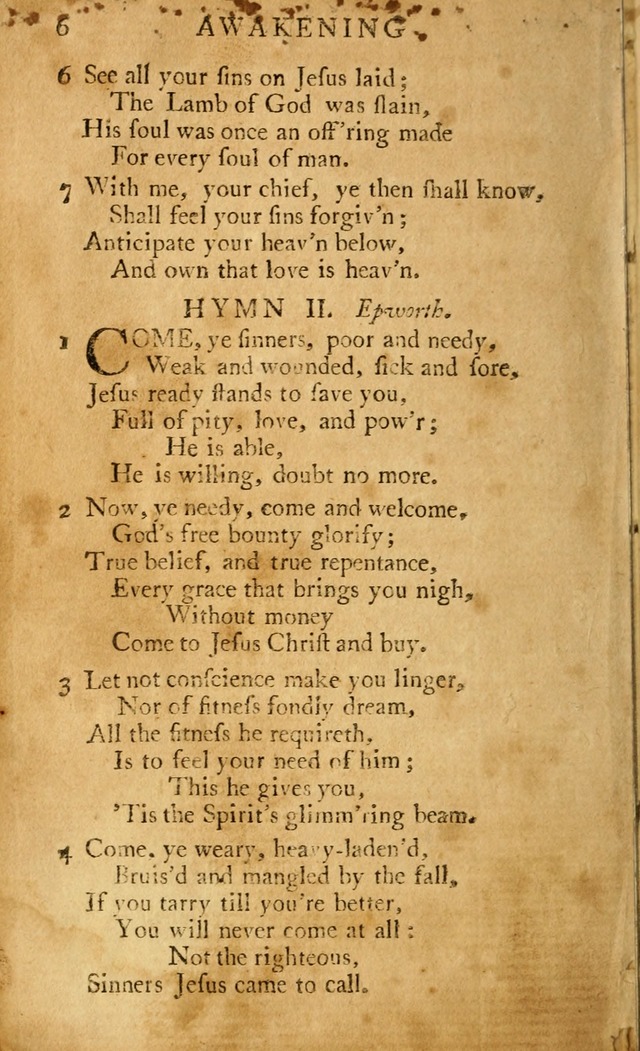 6 AWAKENING.
6 See all your ſins on Jeſus laid;
The Lamb of God was ſlain,
His ſoul was once an off'ring made
For every ſoul of man.
7 With me, your chief, ye then ſhall know,
Shall feel your ſins forgiv'n;
Anticipate your heav'n below,
And own that love is heav'n.
HYMN II. Epworth.
1 COME, ye ſinners, poor and needy,
Weak and wounded, ſick and ſore,
Jeſus ready ſtands to ſave you,
Full of pity, love, and pow'r;
He is able,
He is willing, doubt no more.
2 Now, ye needy, come and welcome,
God's free bounty glorify;
True belief, and true repentance,
Every grace that brings you nigh,
Without money
Come to Jeſus Chriſt and buy.
3 Let not conſcience make you linger,
Nor of fitneſs fondly dream,
All the fitneſs he requireth,
Is to feel your need of him;
This he gives you,
'Tis the Spirit's glimm'ring beam.
4 Come, ye weary, heavy-laden'd,
Bruis'd and mangled by the fall,
If you tarry till you're better,
You will never come at all:
Not the righteous,
Sinners Jeſus came to call.